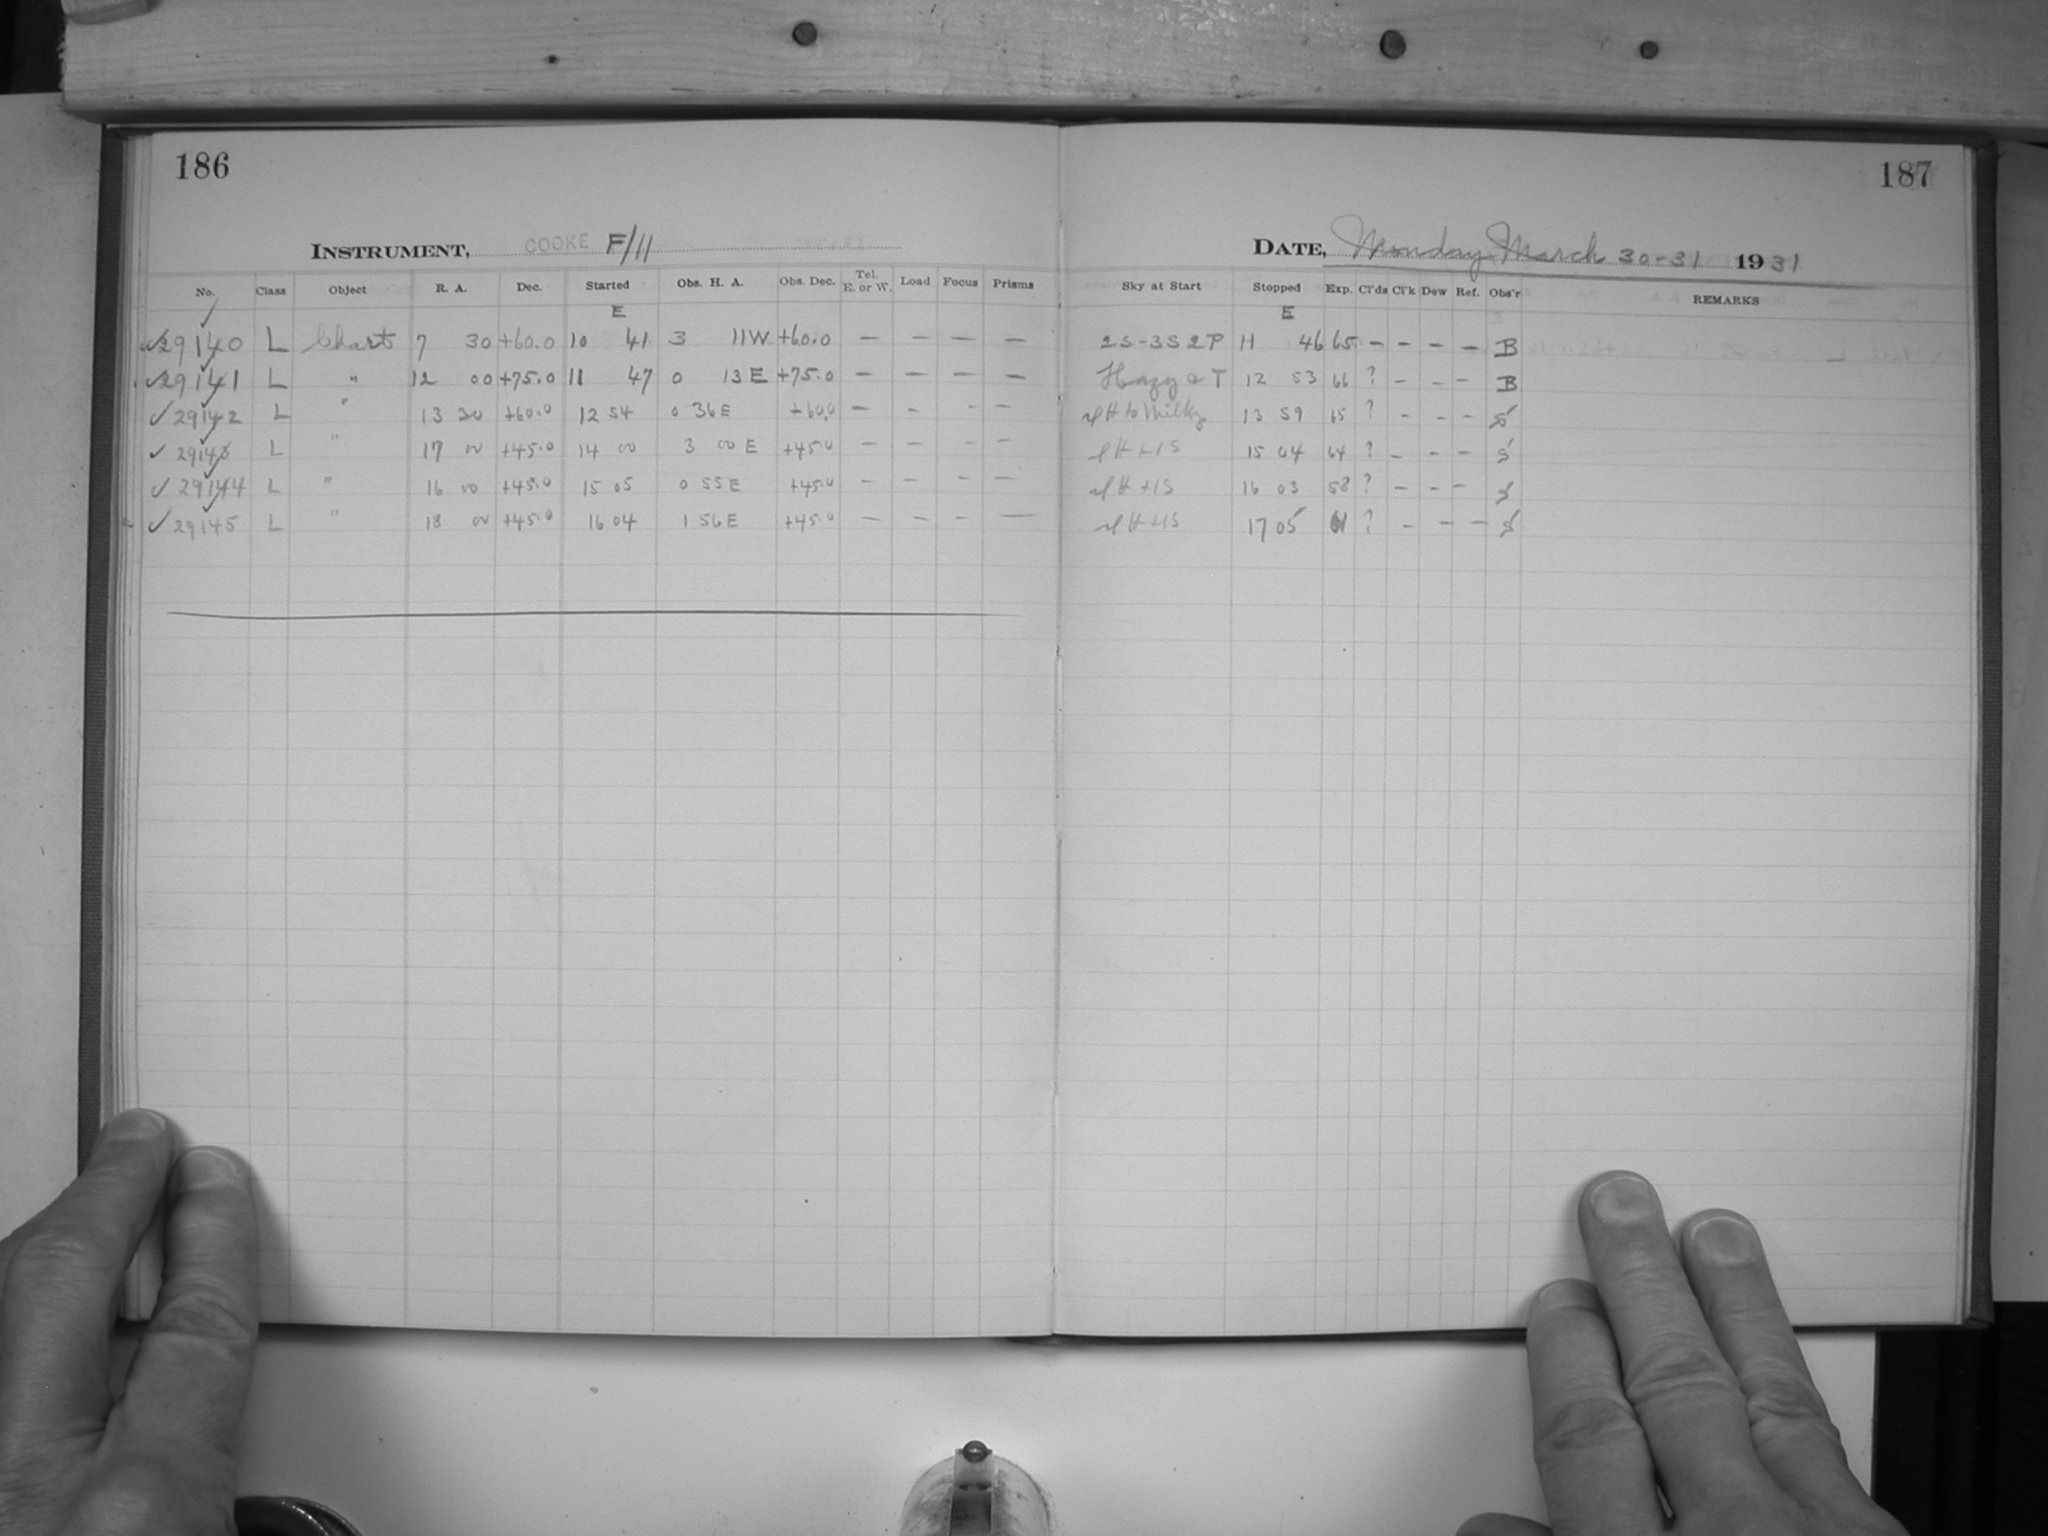 186
INSTRUMENT, COOKE F/11
No. Class Object R. A. Dec. Started Obs. H. A. Obs. Dec. Tel. E. or W. Load Focus Prisms
E
✓29140 L Chart 7 30 +60.0 10 41 3 11W +60.0 — — — —
✓29141 L " 12 00 +75.0 11 47 0 13E +75.0 — — — —
✓29142 L " 13 30 +60.0 12 54 0 36E +60.0 — - - -
✓29143 L " 17 00 +45.0 14 00 3 00 E +45.0 — - - -
✓29144 L " 16 00 +45.0 15 05 0 55E +45.0 — - - -
✓29145 L " 18 00 +45.0 16 04 1 56E +45.0 — - - —
187
DATE, Monday March 30-31 1931
Sky at Start Stopped Exp. Cl'ds Cl'k Dew Ref. Obs'r REMARKS
E
2S-3S2P 11 46 65 - - - - B
Hazy T 12 53 66 ? - - - B
H to Milky 13 59 65 ? - - - S
H 15 15 04 64 ? - - - S
H +1S 16 03 58 ? - - - S
H +1S 17 05 61 ? - - - S